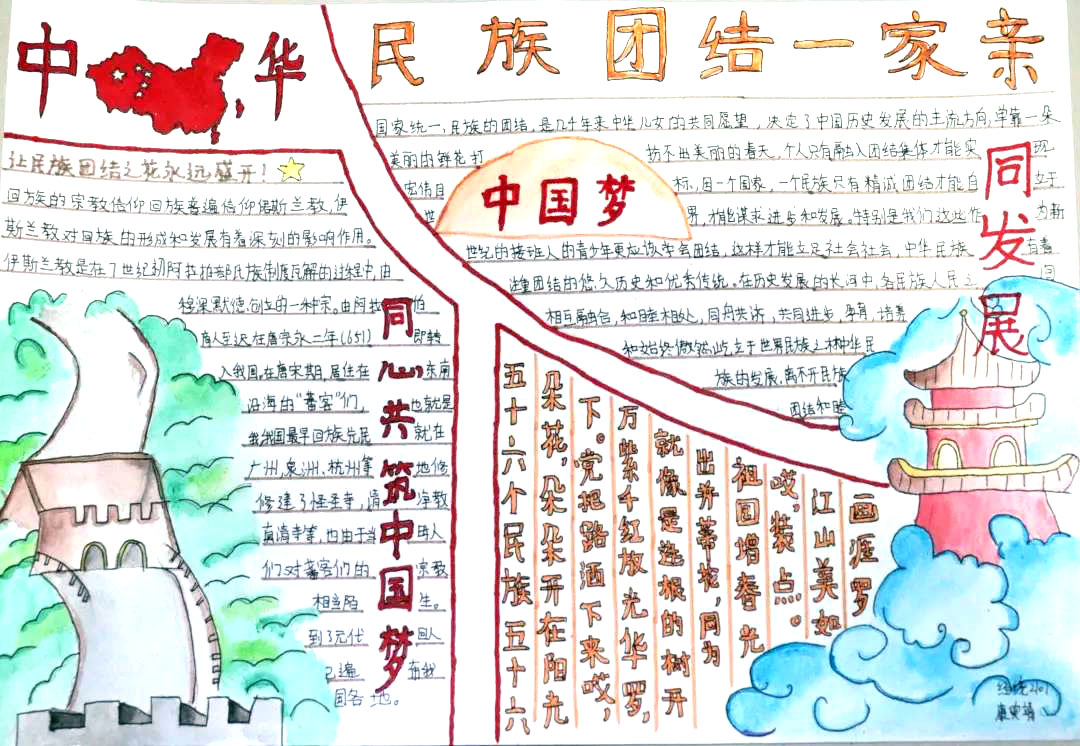 中华
民族团结一家亲
国家统一,民族的团结,是几千年来中华儿女的共同愿望,决定了中国历史发展的主流方向,学靠一朵
美丽的鲜花打 扮不出美丽的春天,个人只有融入团结集体才能实 现
宏伟目 标,因一个国家,一个民族只有精诚团结才能自 立于
世 界,才能谋求进步和发展。特别是我们这些作 为新
世纪的接班人的青少年更应该学会团结,这样才能立足社会社会,中华民族 有着
注重团结的悠久历史和优秀传统。在历史发展的长河中,各民族人民
相互融合,和睦相处,同舟共济,共同进步,孕育,培养
和始终傲然屹立于世界民族之林中华民
族的发展,离不开民族
团结和睦
中国梦
同发展
让民族团结之花永远盛开!
回族的宗教信仰回族普遍信仰伊斯兰教,伊
斯兰教对回族的形成和发展有着深刻的影响作用。
伊斯兰教是在7世纪初阿拉伯部氏族制度瓦解的过程中,由
穆罕默德创立的一种宗。由阿拉 伯
商人至迟在唐宗永二年(651) 即转
入我国,在唐宋其期,居住在 东南
沿海的“蕃客”们, 也就是
我我国最早回族先民 就在
广州,泉洲,杭州等 地修
修建了怀圣寺,清 净教
真清寺等,也由于当 田人
们对蕃客们的 宗教
相当陌 生。
到了元代 回人
已遍 布我
国各地。
同心共筑中国梦
五十六个民族五十六
朵花,朵朵开在阳光
下。党把路洒下来哎,
万紫千红放光华罗,
就像是连根的树开
出并蒂花,同为
祖国增春光
哎,装点。
江山美如
画涯罗